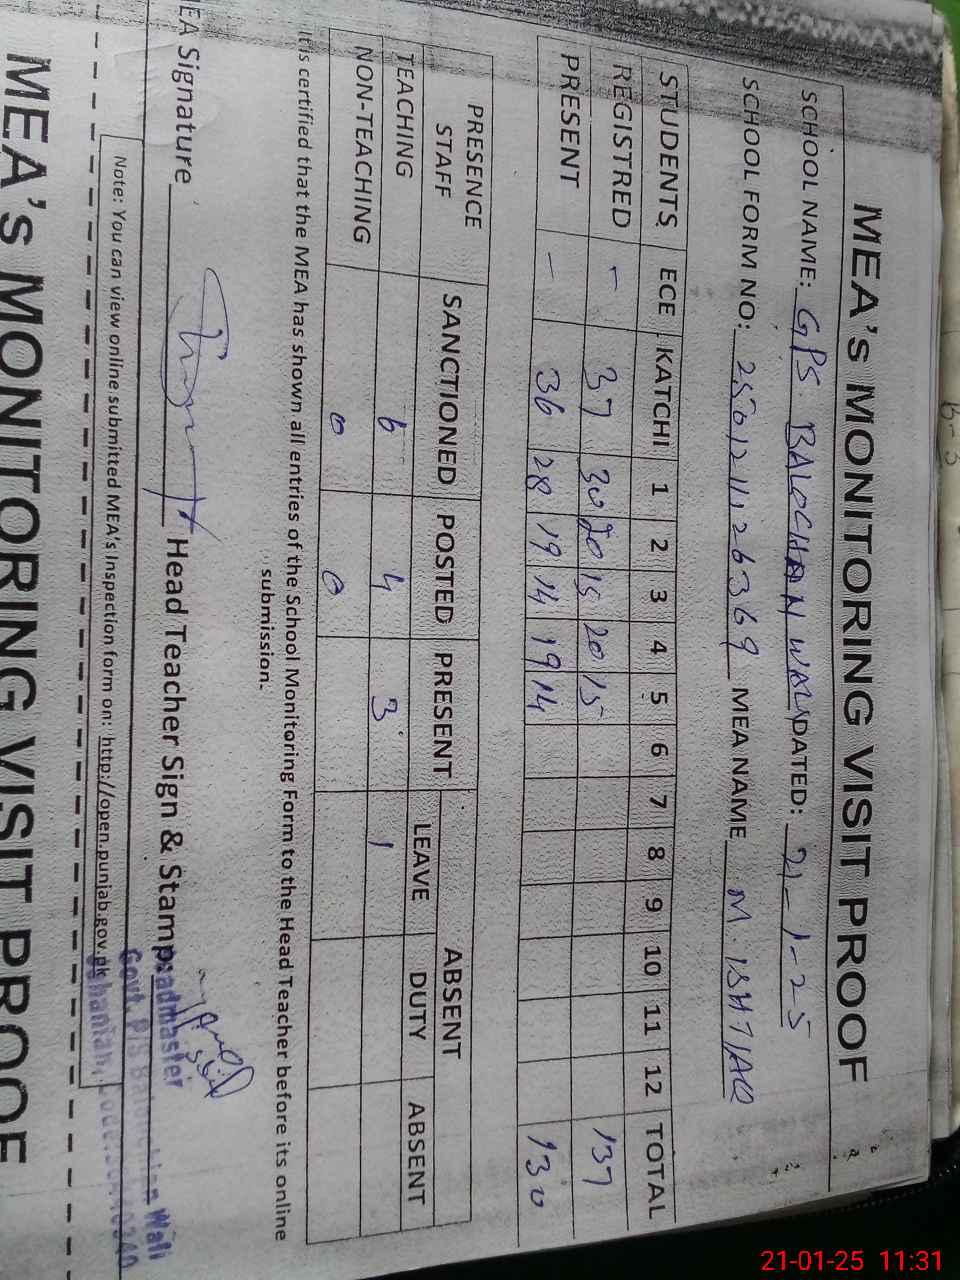 MEA's MONITORING VISIT PROOF
SCHOOL NAME: GPS BALOCHAN WALI DATED: 21-1-25
SCHOOL FORM NO: MEA NAME M. ISHTIAQ
STUDENTS ECE KATCHI 1 2 3 4 5 6 7 8 9 10 11 12 TOTAL
REGISTRED - 37 30 20 15 20 15 137
PRESENT - 36 28 19 14 19 14 130
PRESENCE STAFF SANCTIONED POSTED PRESENT ABSENT
LEAVE DUTY ABSENT
TEACHING 6 4 3 1
NON-TEACHING 0 0
It is certified that the MEA has shown all entries of the School Monitoring Form to the Head Teacher before its online
submission.
MEA Signature Head Teacher Sign & Stamp:
Headmaster
Govt. P/S Balochan Wali
Note: You can view online submitted MEA's Inspection form on: http://open.punjab.gov.pk
MEA's MONITORING VISIT PROOF
21-01-25 11:31